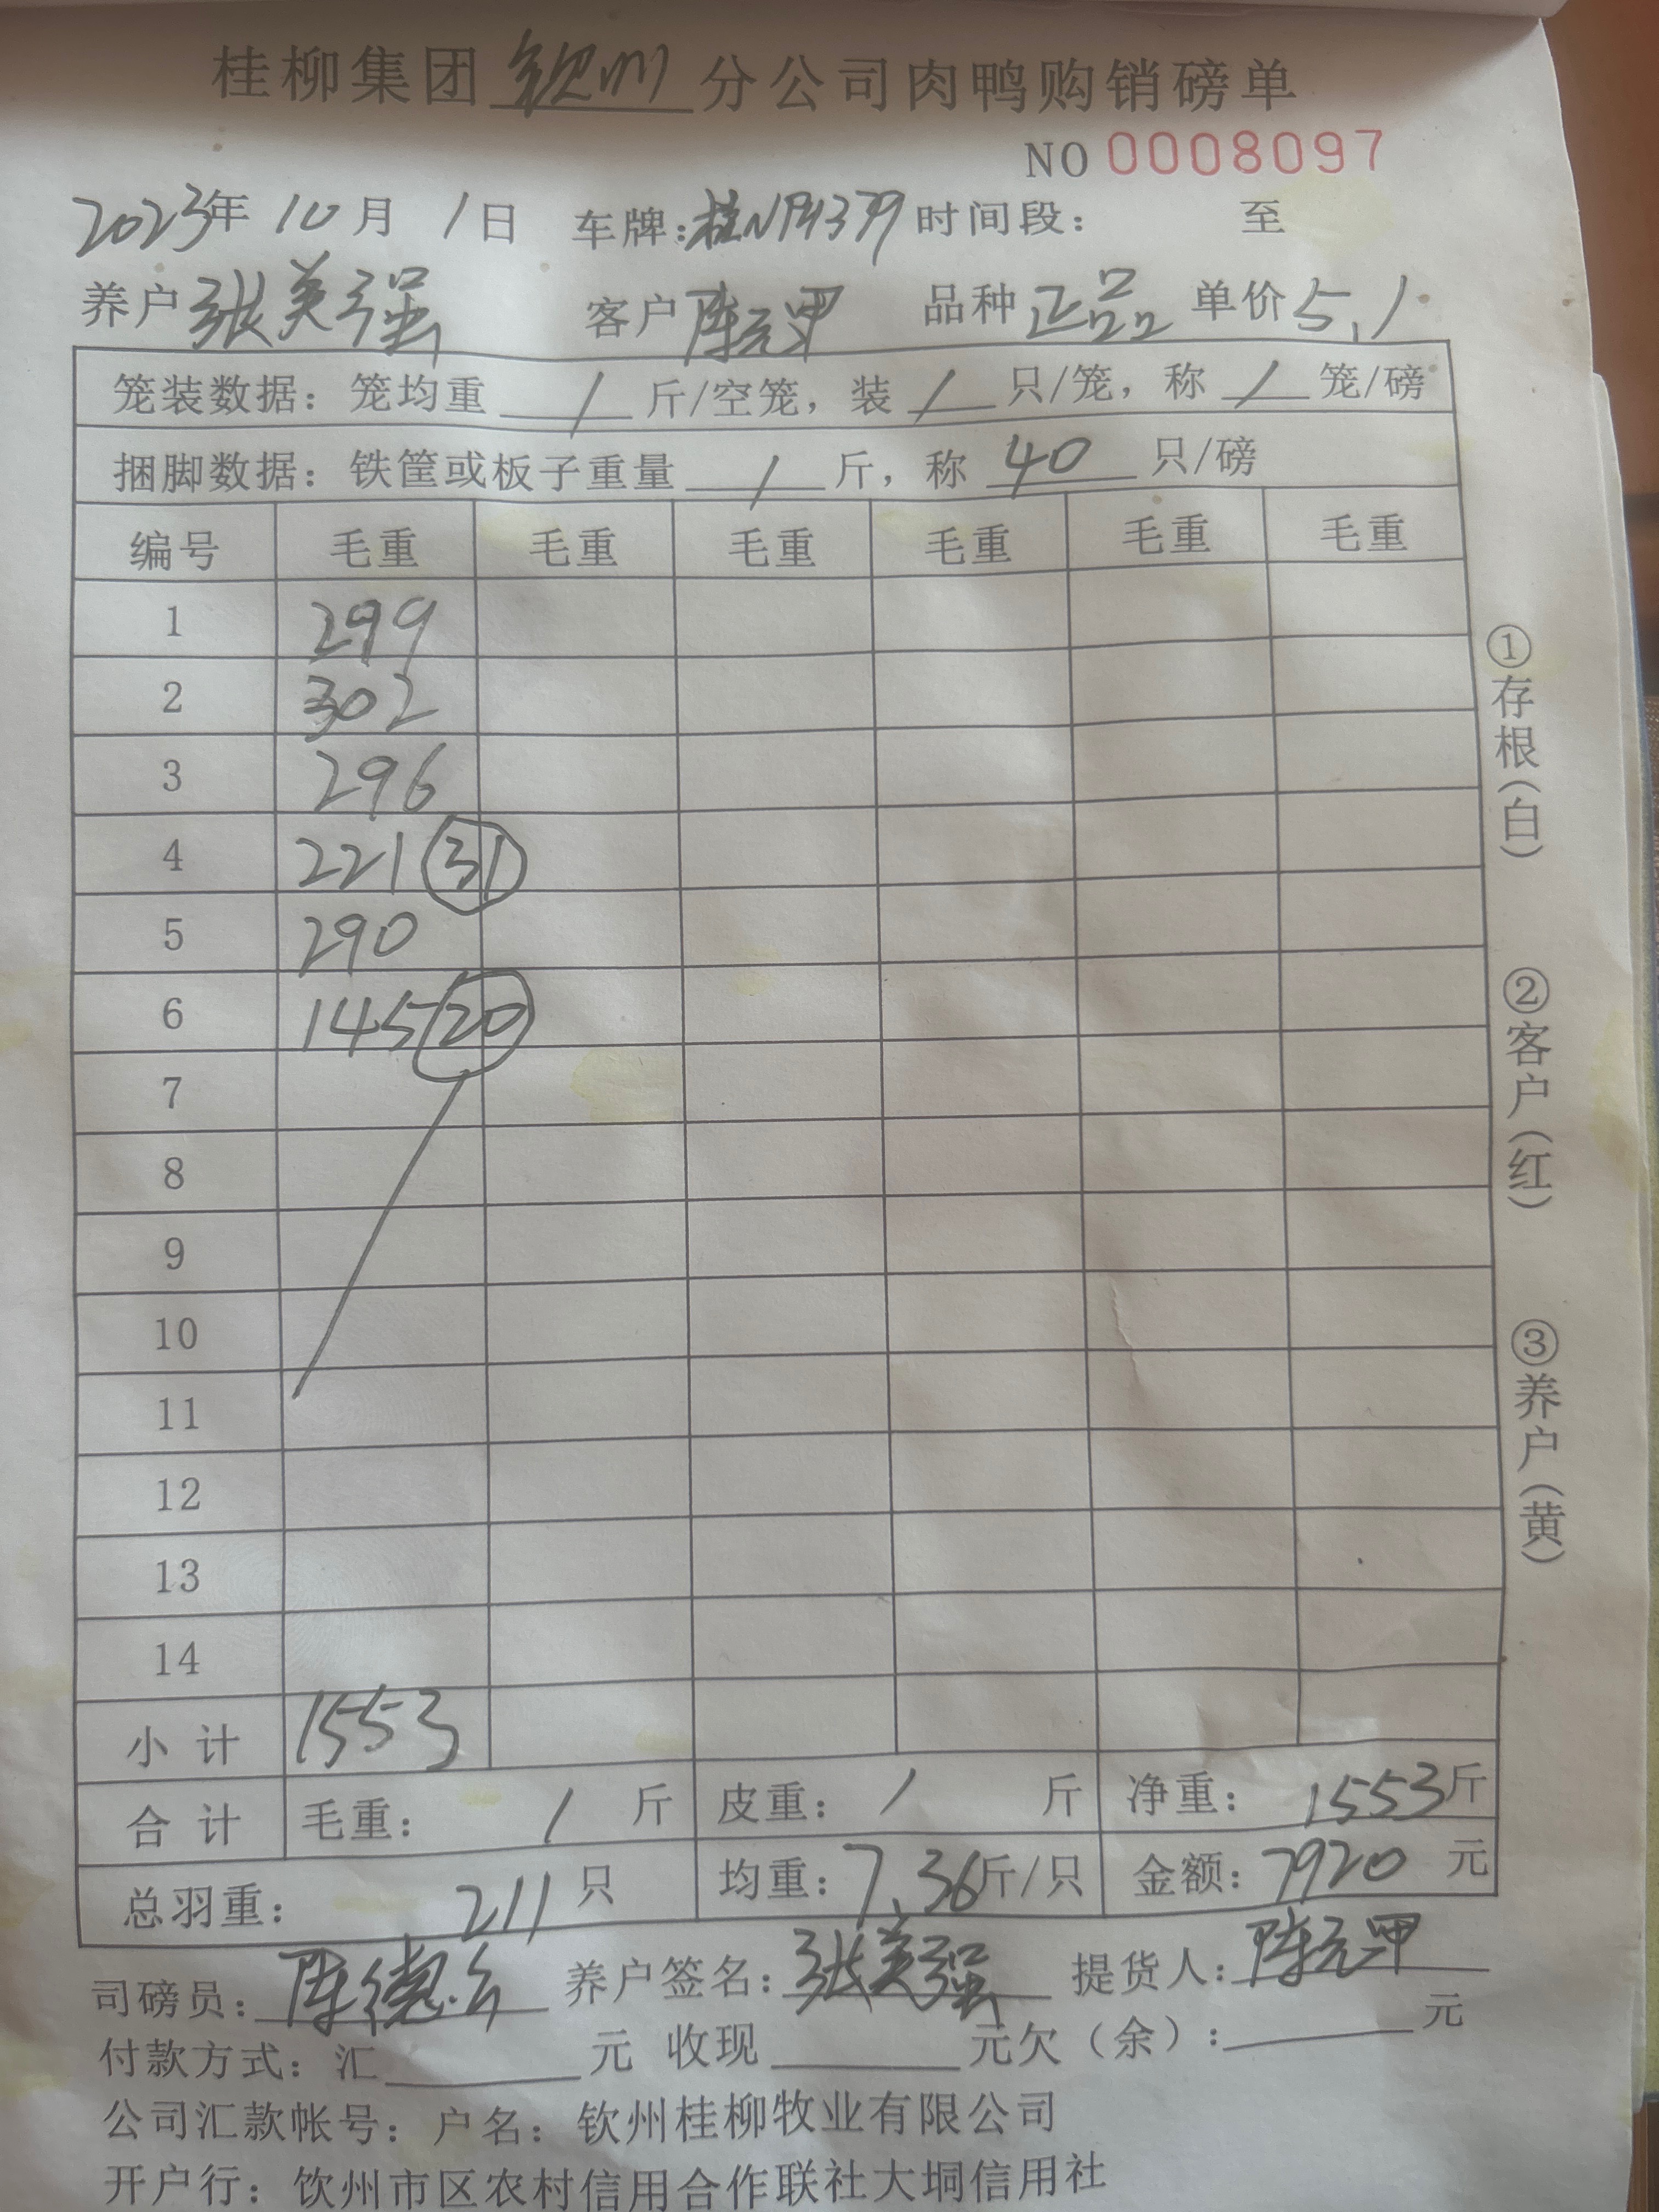 桂柳集团钦州分公司肉鸭购销磅单
NO 0008097
2023年 10月 1日 车牌: 时间段: 至
养户张美强 客户陈元甲 品种正品 单价5.1
笼装数据: 笼均重 / 斤/空笼, 装 / 只/笼, 称 / 笼/磅
捆脚数据: 铁筐或板子重量 / 斤, 称 40 只/磅
编号 毛重 毛重 毛重 毛重 毛重 毛重
1 299
2 302
3 296
4 221 31
5 290
6 145 20
7
8
9
10
11
12
13
14
小计 1553
合计 毛重: / 斤 皮重: / 斤 净重: 1553斤
总羽重: 211只 均重: 7.36斤/只 金额: 7920元
司磅员: 陈德 养户签名: 张美强 提货人: 陈元甲
付款方式: 汇 元 收现 元欠(余): 元
公司汇款帐号: 户名: 钦州桂柳牧业有限公司
开户行: 钦州市区农村信用合作联社大垌信用社
①存根(白)
②客户(红)
③养户(黄)